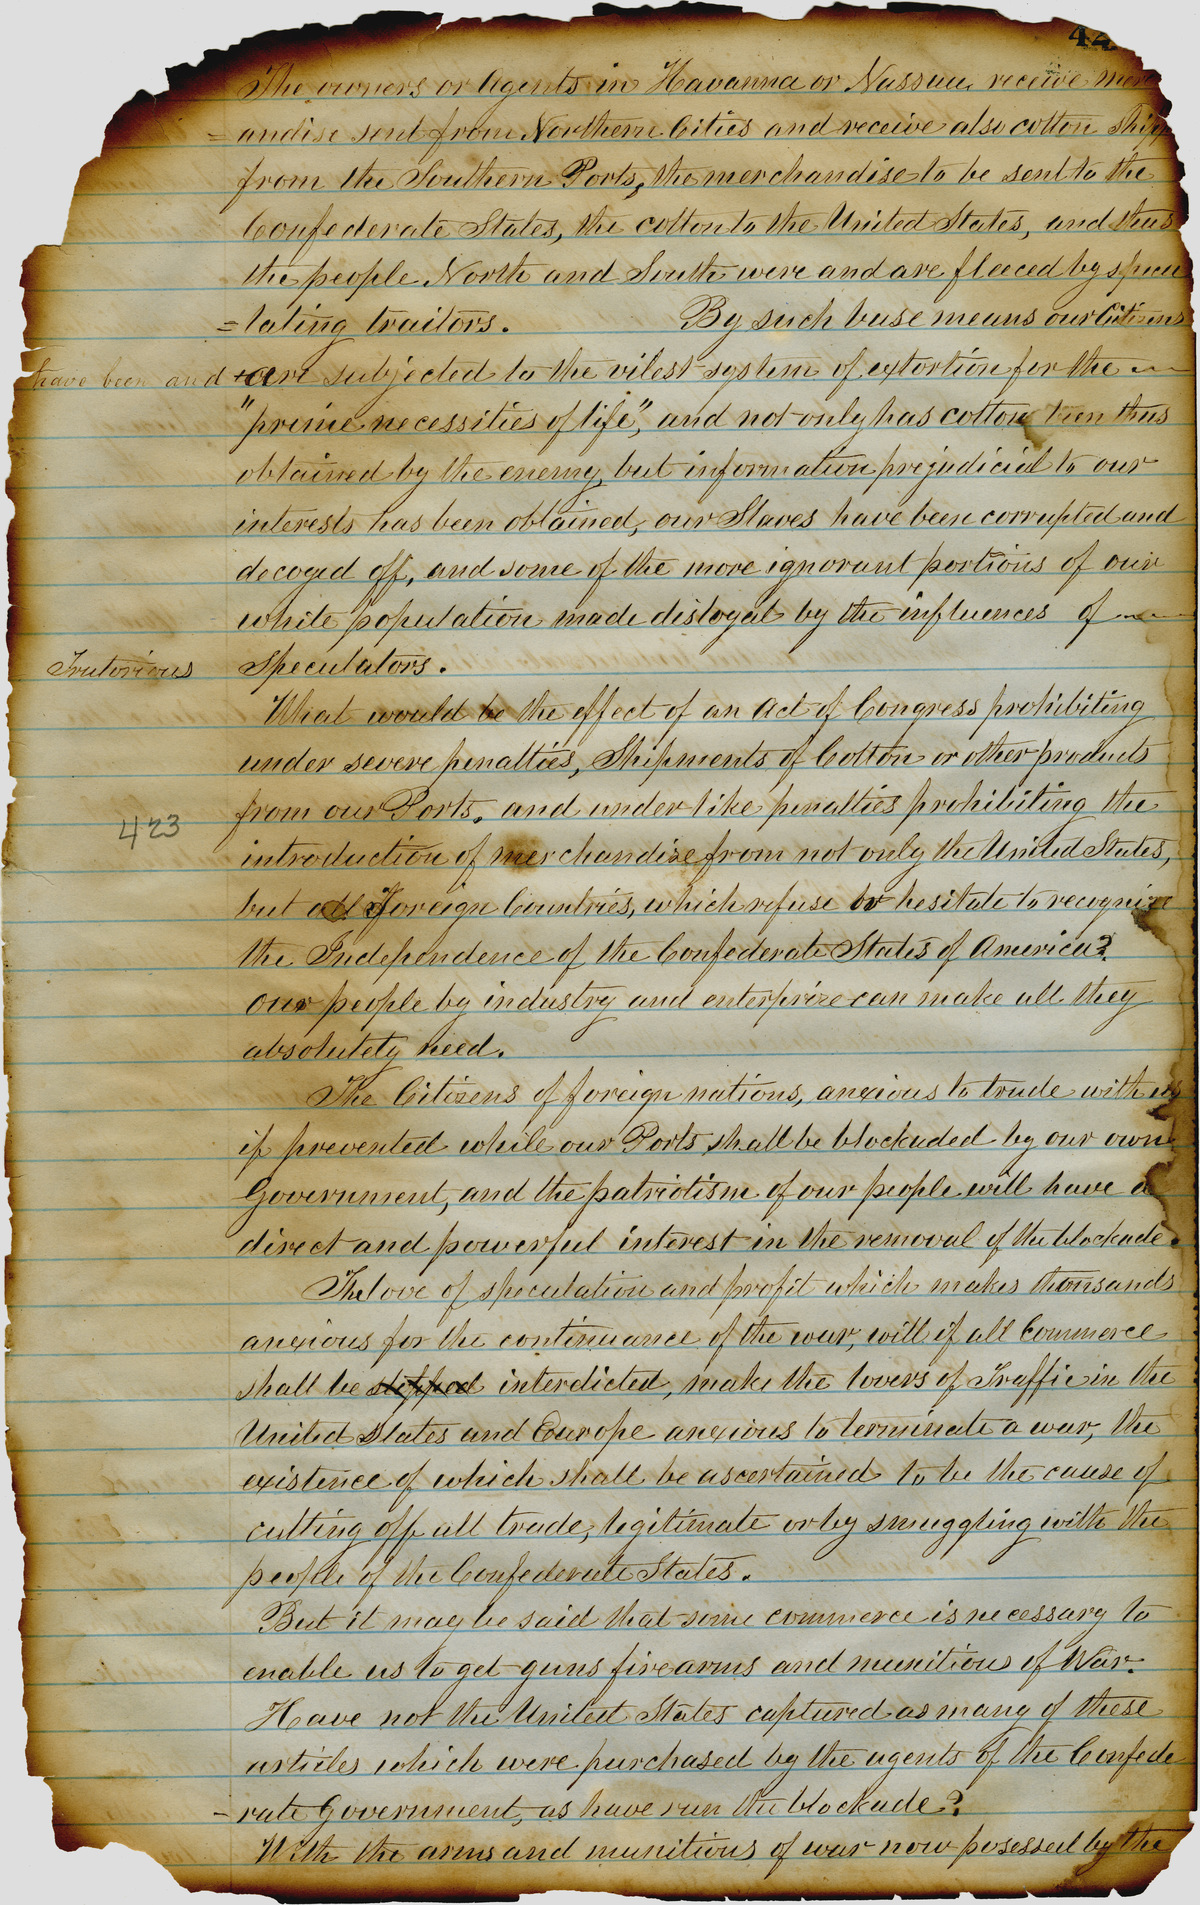 44
The owners or Agents in Havanna or Nassau, receive mer
=andise sent from Northern Cities and receive also cotton ship
from the Southern Ports, the merchandise to be sent to the
Confederate States, the cotton to the United States, and thus
the people North and South were and are fleeced by specu
=lating traitors. By such base means our Citizens
have been and +are subjected to the vilest system of extortion for the
"prime necessities of life", and not only has cotton been thus
obtained by the enemy, but information prejudicial to our
interests has been obtained, our Slaves have been corrupted and
decoyed off, and some of the more ignorant portions of our
white population made disloyal by the influences of
Traitorious speculators.
What would be the effect of an Act of Congress prohibiting
under severe penalties, Shipments of Cotton or other products
from our Ports, and under like penalties prohibiting the
423
introduction of merchandise from not only the United States,
but all foreign Countries, which refuse or hesitate to recognize
the Independence of the Confederate States of America?
our people by industry and enterprize can make all they
absolutely need.
The Citizens of foreign nations, anxious to trade with us
if prevented while our Ports shall be blockaded by our own
Government, and the patriotism of our people will have a
direct and powerful interest in the removal of the blockade.
The love of speculation and profit which makes thousands
anxious for the continuance of the war, will if all Commerce
shall be stopped interdicted, make the lovers of Traffic in the
United States and Europe anxious to terminate a war, the
existence of which shall be ascertained to be the cause of
cutting off all trade, legitimate or by smuggling with the
people of the Confederate States.
But it may be said that some commerce is necessary to
enable us to get guns firearms and munitions of War.
Have not the United States captured as many of these
articles which were purchased by the agents of the Confede
-rate Government, as have run the blockade?
With the arms and munitions of war now posessed by the